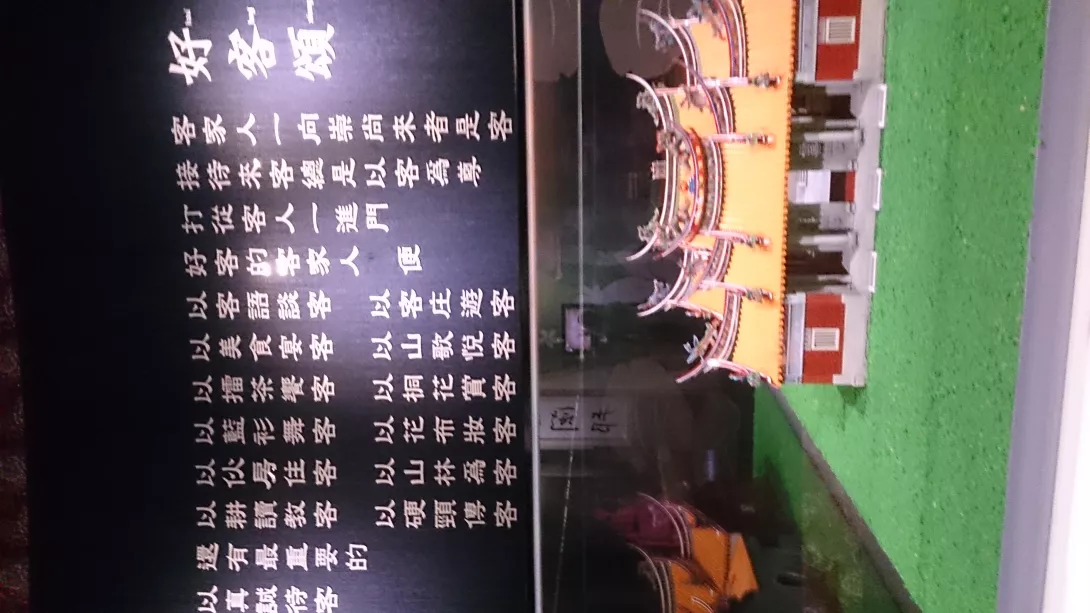 好客頌
客家人一向崇尚來者是客
接待來客總是以客為尊
打從客人一進門
好客的客家人 便
以客語談客 以客庄遊客
以美食宴客 以山歌悅客
以擂茶饗客 以桐花賞客
以藍衫舞客 以花布妝客
以伙房住客 以山林為客
以耕讀教客 以硬頸傳客
還有最重要的
以真誠待客